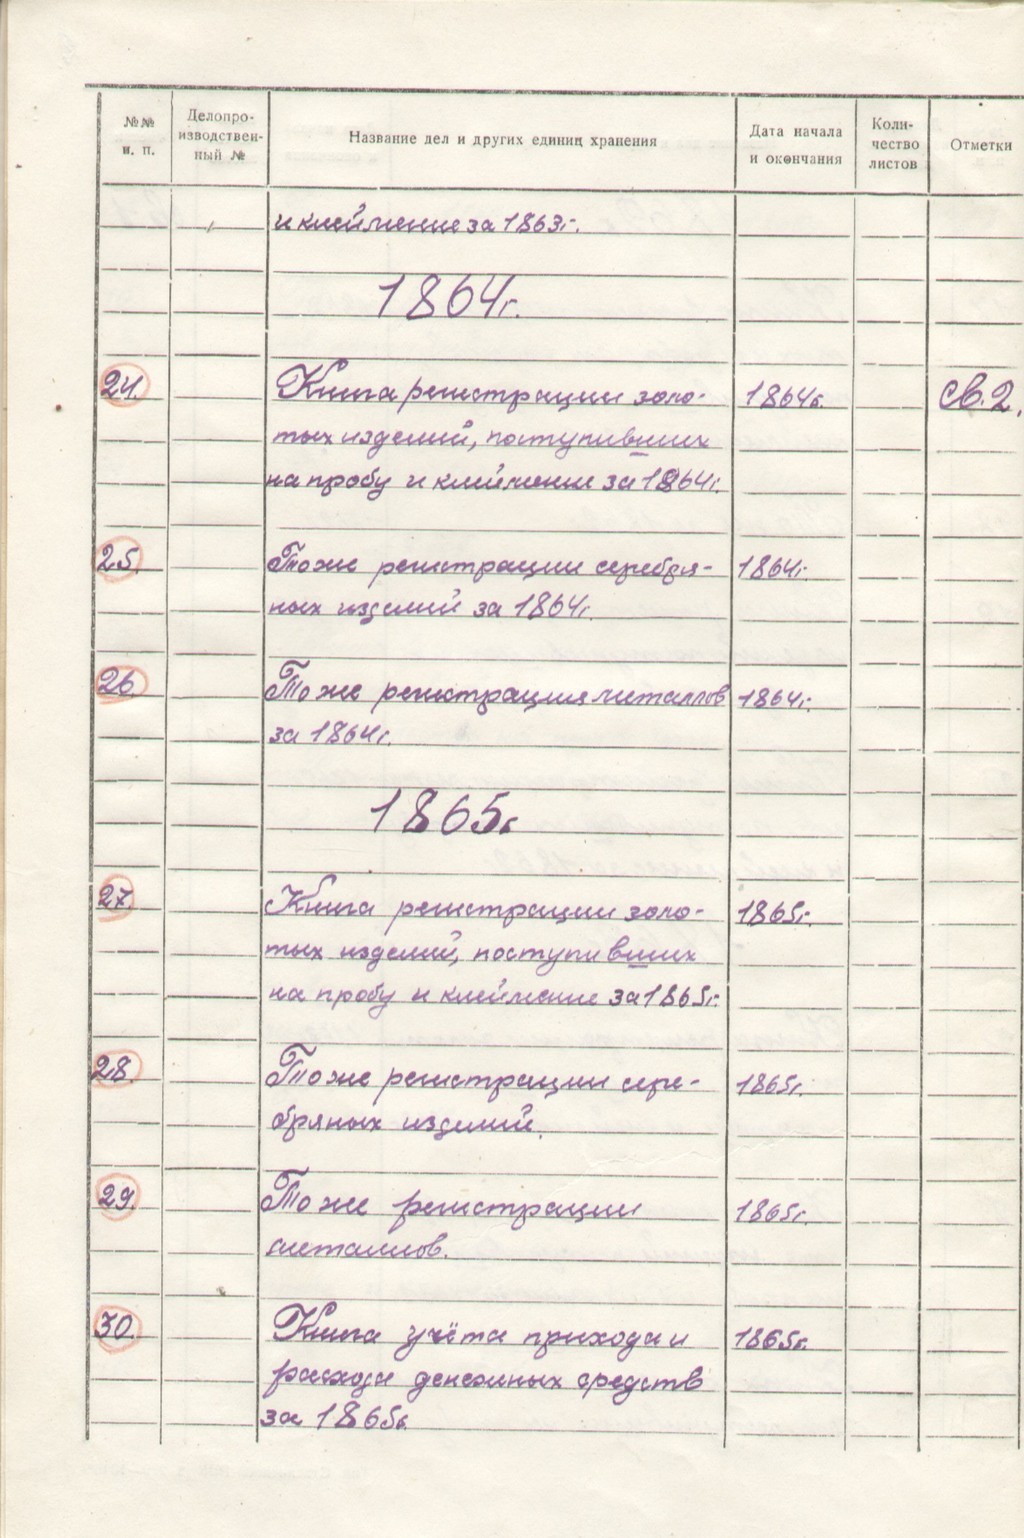 №№ п. п.
Делопроизводственный №
Название дел и других единиц хранения
Дата начала и окончания
Количество листов
Отметки
и клеймение за 1863г.
1864г.
24. Книга регистрации золо- 1864г. св. 2.
тых изделий, поступивших
на пробу и клеймение за 1864г.
25. То же регистрации серебря- 1864г.
ных изделий за 1864г.
26 То же регистрация металлов 1864г.
за 1864г.
1865г
27. Книга регистрации золо- 1865г.
тых изделий, поступивших
на пробу и клеймение за 1865г.
28. То же регистрации сере- 1865г.
бряных изделий.
29. То же регистрации 1865г.
металлов.
30. Книга учёта прихода и 1865г.
расхода денежных средств
за 1865г.